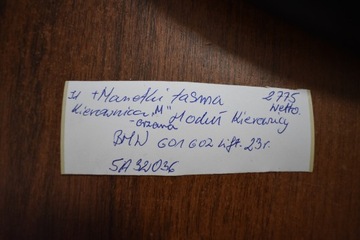 +Manetki taśma 2775
Kierownica „M” Netto
-czarna Moduł Kierownicy
BMW G01 G02 Lift. 23r.
5A321036